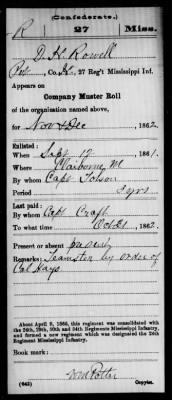 (Confederate.)
R 27 Miss.
D. H. Rowell
Pvt, Co. H, 27 Reg't Mississippi Inf.
Appears on
Company Muster Roll
of the organization named above,
for Nov & Dec, 1862.
Enlisted:
When Sept 12, 1861.
Where
By whom Capt
Period 3 yrs
Last paid:
By whom Capt Craft
To what time Oct 31, 1862.
Present or absent present
Remarks: Teamster by order of
Col Hays
About April 9, 1865, this regiment was consolidated with
the 24th, 29th, 30th and 34th Regiments Mississippi Infantry,
and formed a new regiment which was designated the 24th
Regiment Mississippi Infantry.
Book mark:
Wm Potter
(642) Copyist.